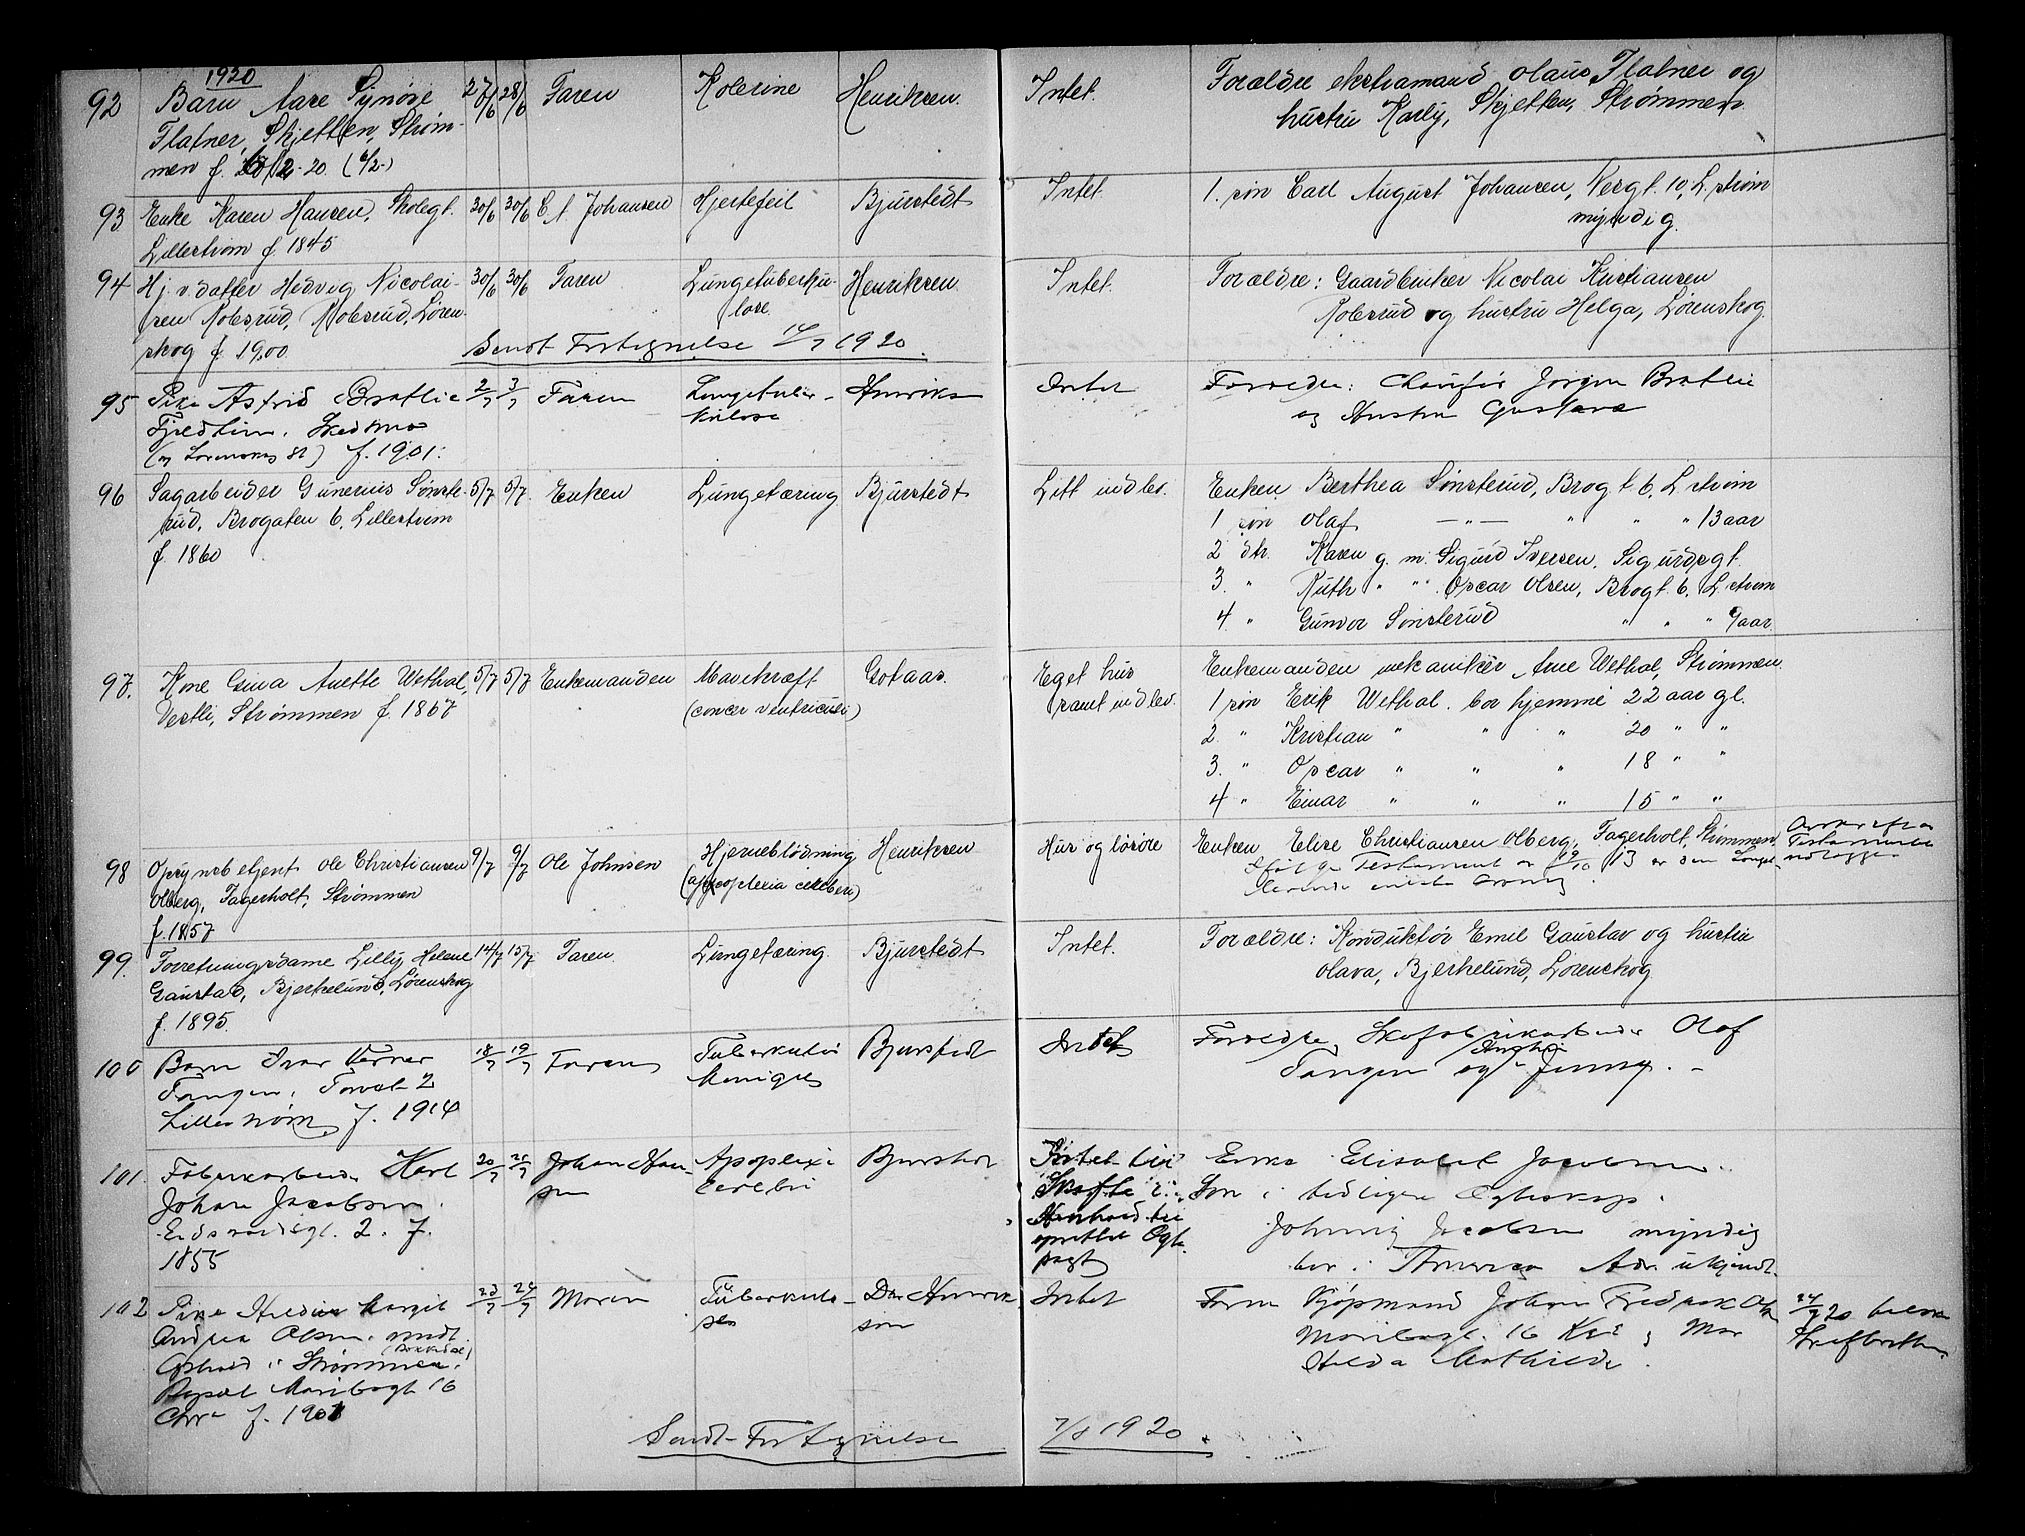 1920
92 Barn Aase Synøve 27/6 28/6 Faren Kolerine Henriksen. Intet. Forældre ekstramand Olaus Flatner og
Flatner, Skjetten, Strøm- hustru Karly, Skjetten, Strømmen
men f. 2-20. (4/2-)
93 Enke Karen Hansen, Skolegt. 30/6 30/6 C. A. Johansen Hjertefeil Bjurstedt Intet. 1. søn Carl August Johansen, Vergt. 10, L.strøm
Lillestrøm f. 1845 myndig.
94 Hj. v. datter Hedvig Nicolai- 30/6 30/6 Faren Lungetuberku- Henriksen. Intet. Forældre: Gaardbruker Nicolai Kristiansen
sen Robsrud, Robsrud, Løren- lose Robsrud og hustru Helga, Lørenskog.
skog f. 1900.
Sendt Fortegnelse 1920.
95 Pike Astrid Bratlie 2/7 3/7 Faren Lungetuber- Henriksen Intet Forældre: Chauffør Jørgen Bratlie
Fjeldheim. Skedsmo kulose og Hustru Gustava
f. 1901.
96 Sagarbeider Gunerius Sønste- 5/7 5/7 Enken Lungetæring Bjurstedt Litt indbo. Enken Berthea Sønsterud, Brogt. 6, L.strøm
rud. Brogaten 6, Lillestrøm 1 søn Olaf —"— " " " 13 aar
f. 1860 2 dtr. Karen g. m. Sigurd Iversen, Sigurdsgt.
3. " Ruth " " Oscar Olsen, Brogt. 6. L.strøm
4. " Gunvor Sønsterud " " " 9 aar.
97. Kone Gina Anette Wethal, 5/7 5/7 Enkemanden Mavekræft Gotaas. Eget hus Enkemanden mekaniker Arne Wethal, Strømmen
Vestli, Strømmen f. 1867 (cancer ventriculi) samt indbo. 1 søn Erik Wethal. bor hjemme 22 aar gl.
2. " Kristian " " " 20 " "
3. " Oscar " " " 18 " "
4 " Einar " " " 15 " "
98 Opsynsbetjent Ole Christiansen 9/7 9/7 Ole Johnsen Hjerneblødning Henriksen Hus og løsøre Enken Elise Christiansen Olberg, Fagerholt, Strømmen
Olberg, Fagerholt, Strømmen (apoplexia cerebri) Testament av 13 er den
f. 1857
99. Forretningsdame Lilly Helene 14/7 15/7 Faren. Lungetæring. Bjurstedt Intet. Forældre: Konduktør Emil Gaustad og hustru
Gaustad, Bjerkelund, Lørenskog Olava, Bjerkelund, Lørenskog
f. 1895.
100 Barn Ivar Verner 18/7 19/7 Faren Tuberkuløs Bjurstedt Intet Forældre Skofabrikarbeider Olaf
Tangen, Torvet 2 Hustru
Lillestrøm f. 1914 Tangen og Jenny.
101. Fabrikarbeider Karl 20/7 21/7 Johan Han- Apoplexi Bjurstedt Intet Enke Elisabet Jacobsen.
Johan Jacobsen. sen cerebri Skifte i Søn i tidligere Egteskap.
Eidsvoldsgt. 2. f. Henhold til Johnny Jacobsen myndig
1855 oprettet Egte- bor i Amerika Adr. ukjendt
pagt
102 Pike Margit 23/7 24/7 Moren Tuberkulo- Dr Henrik- Intet Faren Kjøpmand Johan Fredrik Olsen 20
Andrea Olsen. midl. se sen Maribogt. 16 Kra og Mor
Ophold i Strømmen. Hilda Mathilde.
Bopæl Maribogt 16
Chra f. 1901
Sendt Fortegnelse 7/8 1920.